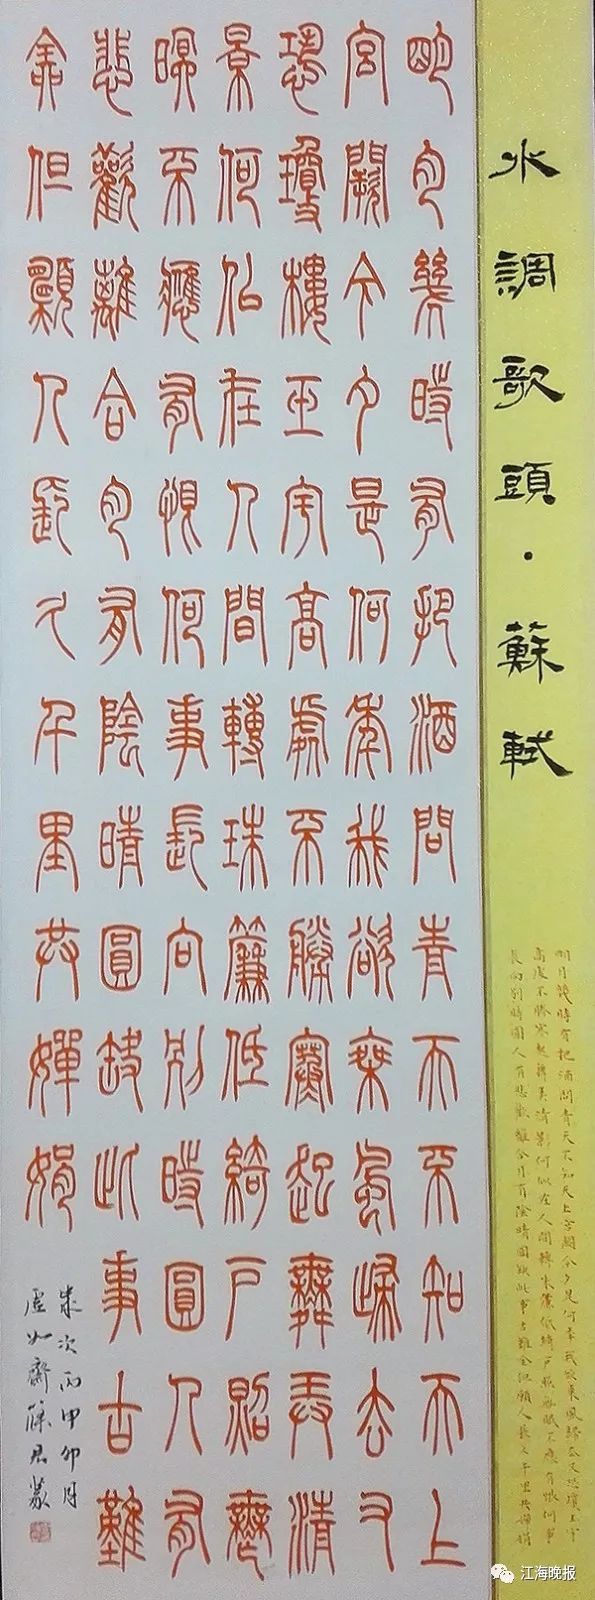 水調歌頭·蘇軾
明月幾時有把酒問青天不知天上宮闕今夕是何年我欲乘風歸去又恐瓊樓玉宇
高處不勝寒起舞弄清影何似在人間轉朱簾低綺戶照無眠不應有恨何事
長向別時圓人有悲歡離合月有陰晴圓缺此事古難全但願人長久千里共嬋娟
明月幾時有把酒問青天不知天上
宮闕今夕是何年我欲乘風歸去又
恐瓊樓玉宇高處不勝寒起舞弄清
景何似在人間轉珠簾低綺戶照無
眠不應有恨何事長向別時圓人有
悲歡離合月有陰晴圓缺此事古難
全但願人長久千里共嬋娟
歲次丙申卯月
虛如齋
江海晚报